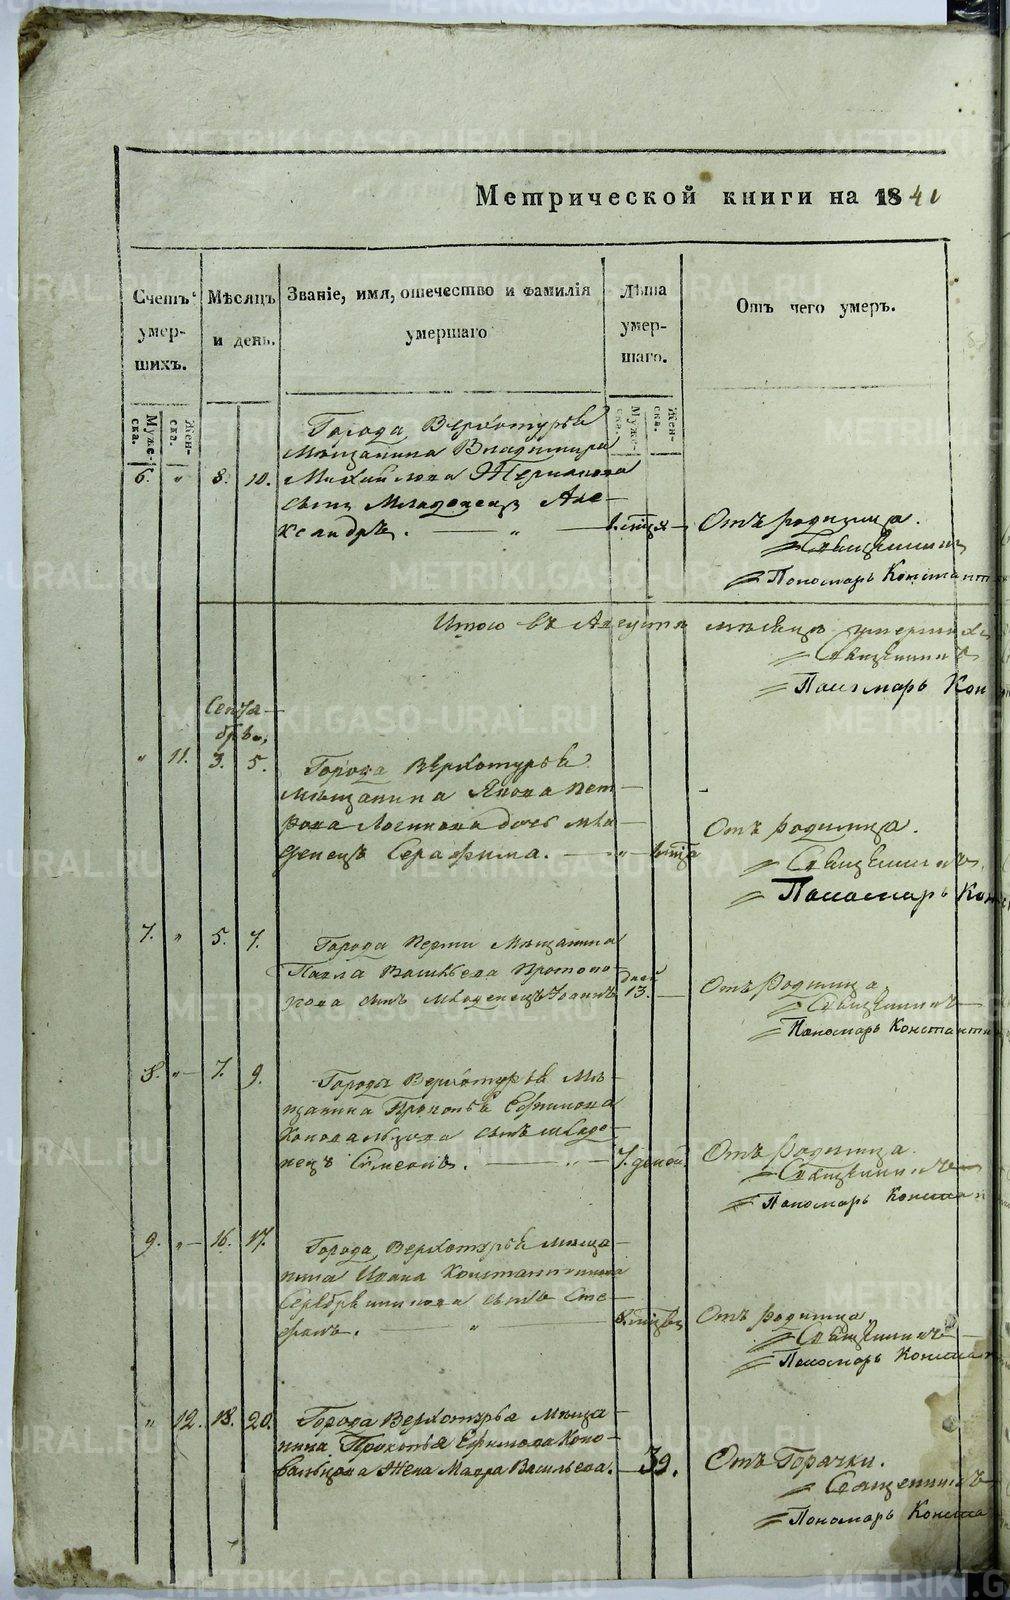 Метрической книги на 1841
Счетъ умер- шихъ.
Мѣсяцъ и день.
Званіе, имя, отечество и фамилія умершаго
Лѣта умер- шаго.
Отъ чего умеръ.
Муже- ска.
Жен- ска.
Муже- ска.
Жен- ска.
Города Верхотурья
Мѣщанина Владимира
6. " 8. 10. Михайлова
сынъ Младенецъ Але-
ксандръ. — " —
Отъ родимца.
Священникъ
Пономарь Констант
Итого въ Августѣ мѣсяцѣ умерших
Священникъ
Пономарь Кон
Сентя-
брь.
" 11. 3. 5. Города Верхотурья
Мѣщанина Якова Пет-
рова Логинова дочь мла-
денецъ Серафима. — " —
Отъ родимца.
Священникъ
Пономарь Кон
7. " 5. 7. Города Перми Мѣщанина
Павла Васильева Протопо-
пова сынъ младенецъ Іоаннъ дней 13. —
Отъ Родимца.
Священникъ
Пономарь Константи
8. " 7. 9. Города Верхотурья Мѣ-
щанина Прокопья Ефимова
Коновальцова сынъ младе-
нецъ Симеонъ. — " — 7. дней.
Отъ родимца.
Священникъ
Пономарь Констан
9. " 16. 17. Города Верхотурья мѣща-
нина Ивана Константинова
Серебрянникова сынъ Сте-
фанъ. — " —
Отъ родимца
Священникъ
Пономарь Констан
" 12. 18. 20. Города Верхотурья Мѣща-
нина Прокопья Ефимова Коно-
вальцова Жена Мавра Васильева. — 39.
Отъ Горячки.
Священникъ
Пономарь Конста
METRIKI.GASO-URAL.RU